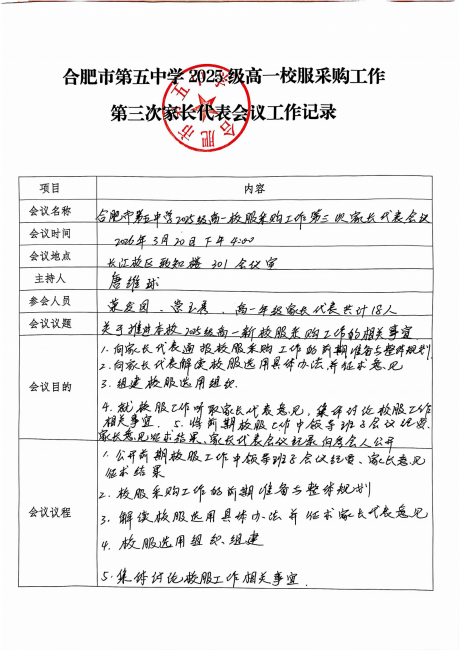 合肥市第五中学2025级高一校服采购工作
第三次家长代表会议工作记录
项目 内容
会议名称 合肥市第五中学2025级高一校服采购工作第三次家长代表会议
会议时间 2026年3月20日下午4:00
会议地点 长江校区致知楼301会议室
主持人 唐维球
参会人员 高一年级家长代表共计18人
会议议题 关于推进本校2025级高一新校服采购工作的相关事宜
会议目的
1.向家长代表通报校服采购工作的前期准备与整体规划
2.向家长代表解读校服选用具体办法,并征求意见
3.组建校服选用组织
4.就校服工作听取家长代表意见,集体讨论校服工作
相关事宜. 5.将前期校服工作中领导班子会议纪要、
家长意见征求结果、家长代表会议纪录向与会人公开
会议议程
1.公开前期校服工作中领导班子会议纪要、家长意见
征求结果
2.校服采购工作的前期准备与整体规划
3.解读校服选用具体办法并征求家长代表意见
4.校服选用组织组建
5.集体讨论校服工作相关事宜.